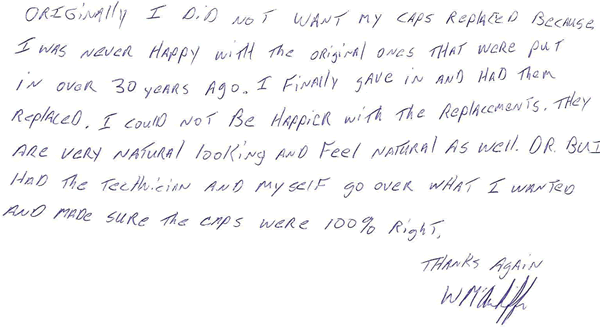 ORIGINALLY I DID NOT WANT MY CAPS REPLACED BECAUSE
I WAS NEVER HAPPY WITH THE ORIGINAL ONES THAT WERE PUT
IN OVER 30 YEARS AGO. I FINALLY GAVE IN AND HAD THEM
REPLACED. I COULD NOT BE HAPPIER WITH THE REPLACEMENTS. THEY
ARE VERY NATURAL LOOKING AND FEEL NATURAL AS WELL. DR. BUI
HAD THE TECTHICIAN AND MYSELF GO OVER WHAT I WANTED
AND MADE SURE THE CAPS WERE 100% RIGHT.
THANKS AGAIN